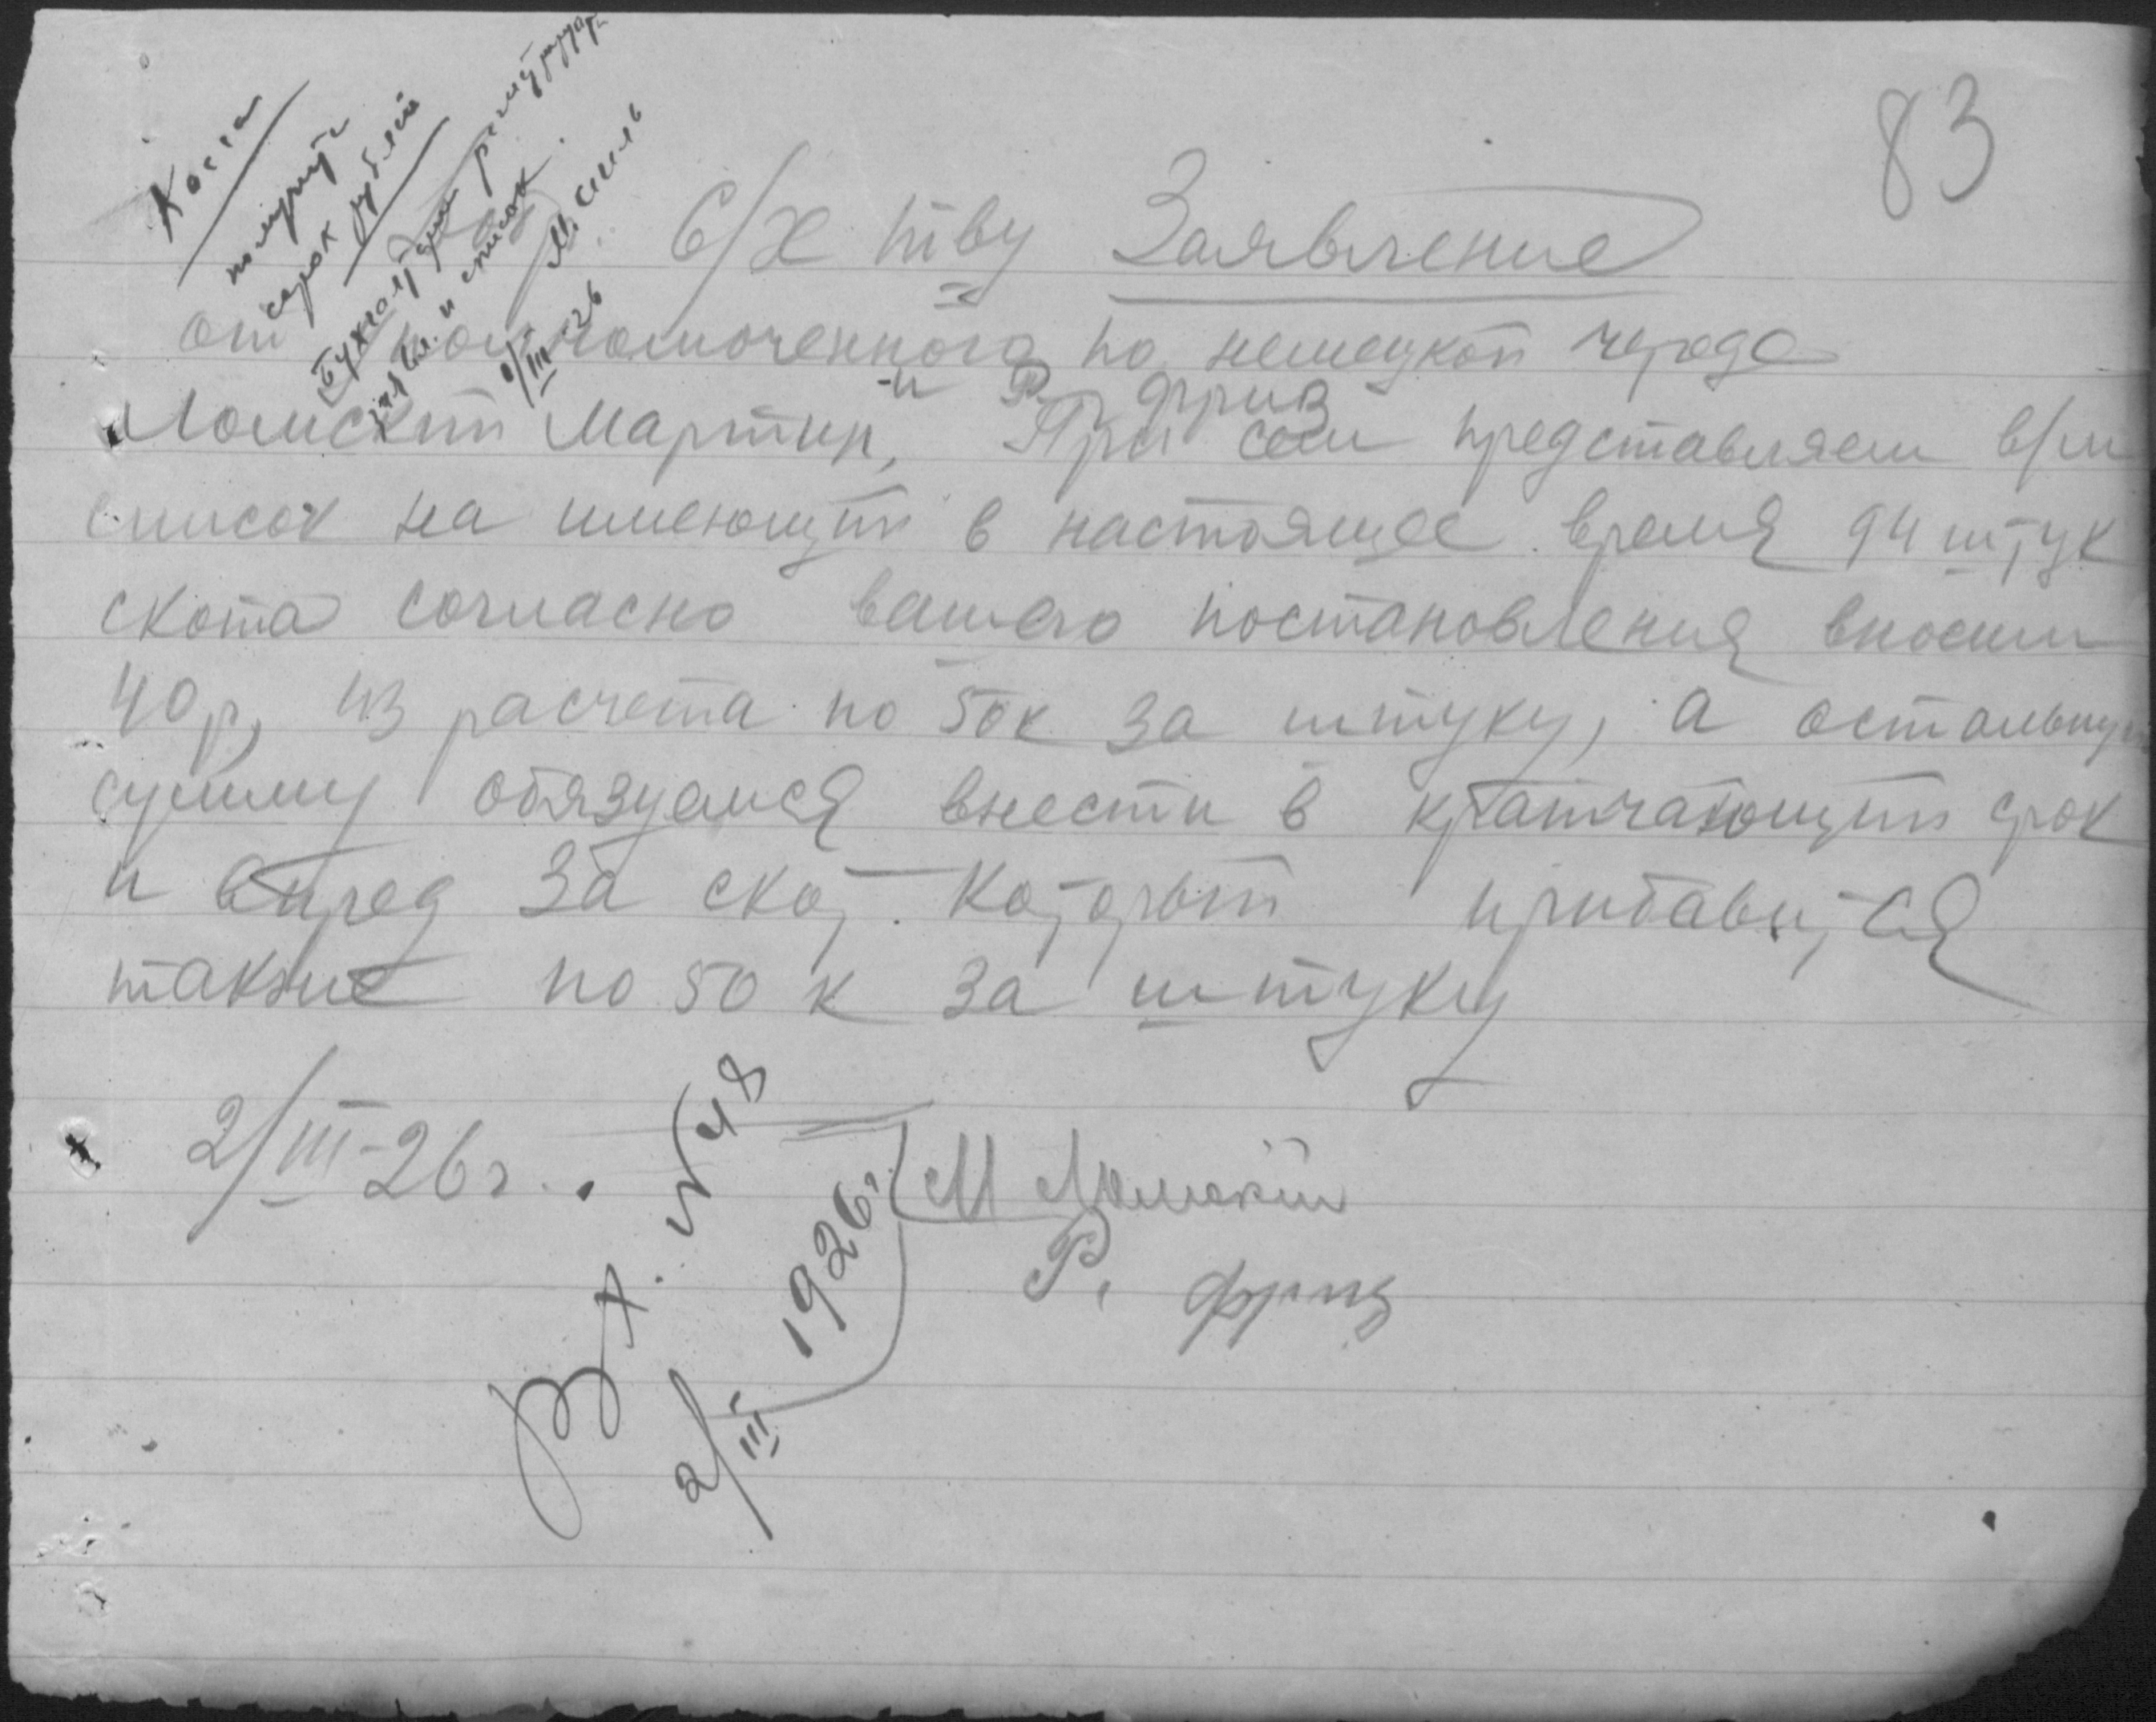 83
Касса
получить
сорок рублей
Бухгалт. для регистрац.
заявл. и список.
М. Силь
2/III 26
С/Х тву Заявление
от уполномоченного по немецкой череде
и Р. Фриц
Ломский Мартин, При сем представляем в/м
список на имеющий в настоящее время 94 штук
скота согласно вашего постановления вносим
40 р, из расчета по 50 к за штуку, а остальную
сумму обязуемся внести в кратчающий срок
и впред за скот. который прибавится
также по 50 к за штуку
2/III-26 г.
М Ломский
Р. Фриц
Вх. № 48
2/III 1926 г.